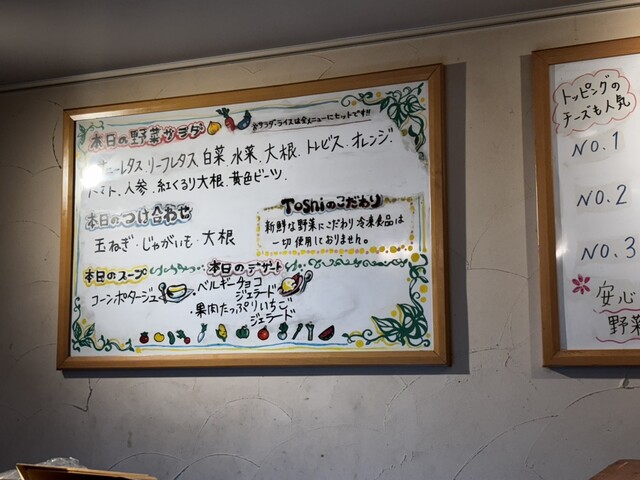 本日の野菜サラダ
☆サラダ・ライスは全メニューにセットです!!
サニーレタス、リーフレタス、白菜、水菜、大根、トレビス、オレンジ、
トマト、人参、紅くるり大根、黄色ビーツ、
本日のつけ合わせ
玉ねぎ・じゃがいも・大根
Toshiのこだわり
新鮮な野菜にこだわり冷凍食品は
一切使用しておりません。
本日のスープ
コーンポタージュ
本日のデザート
・ベルギーチョコ
ジェラード
・果肉たっぷりいちご
ジェラード
トッピングの
チーズも人気
NO.1
NO.2
NO.3
安心
野菜